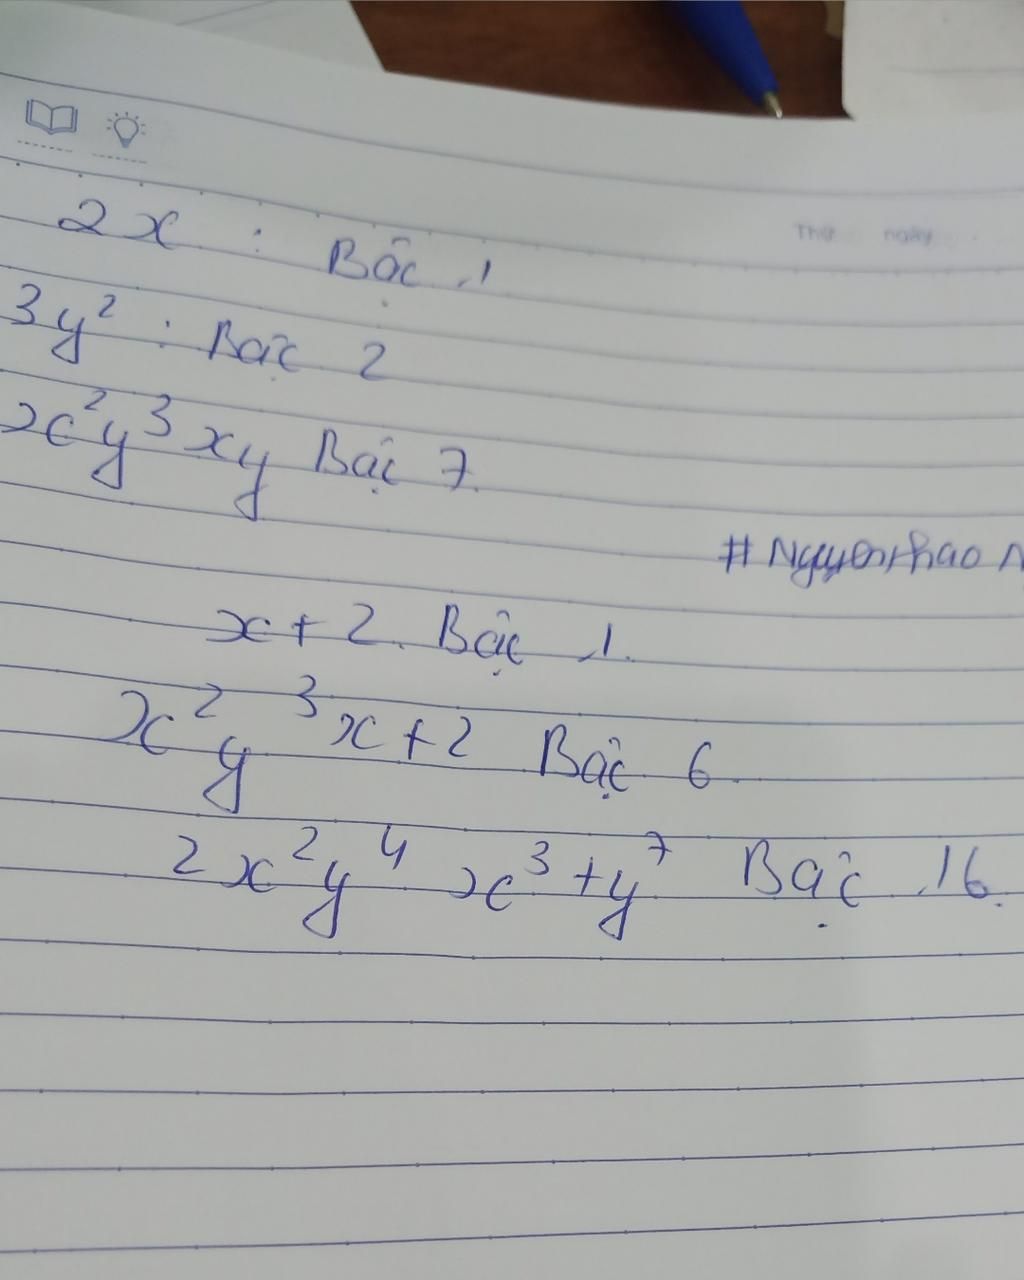 Thứ ngày
2x : Bậc 1
3y² : Bậc 2
x²y³xy Bậc 7.
x+2. Bậc 1.
x²y³x+2 Bậc 6.
2x²y⁴x³+y⁷ Bậc 16.